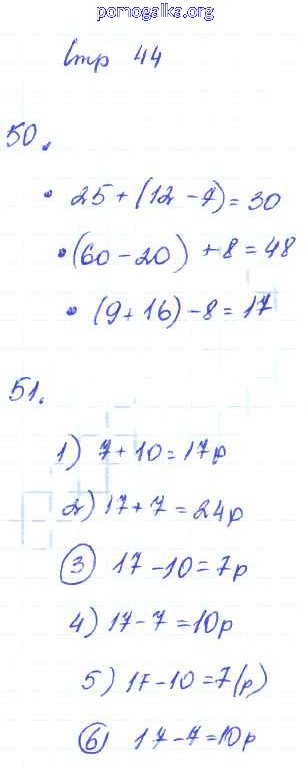 pomogalka.org
Стр 44
50.
• 25 + (12 - 7) = 30
• (60 - 20) + 8 = 48
• (9 + 16) - 8 = 17
51.
1) 7 + 10 = 17р
2) 17 + 7 = 24р
3 17 - 10 = 7р
4) 17 - 7 = 10р
5) 17 - 10 = 7(р)
6 17 - 7 = 10р